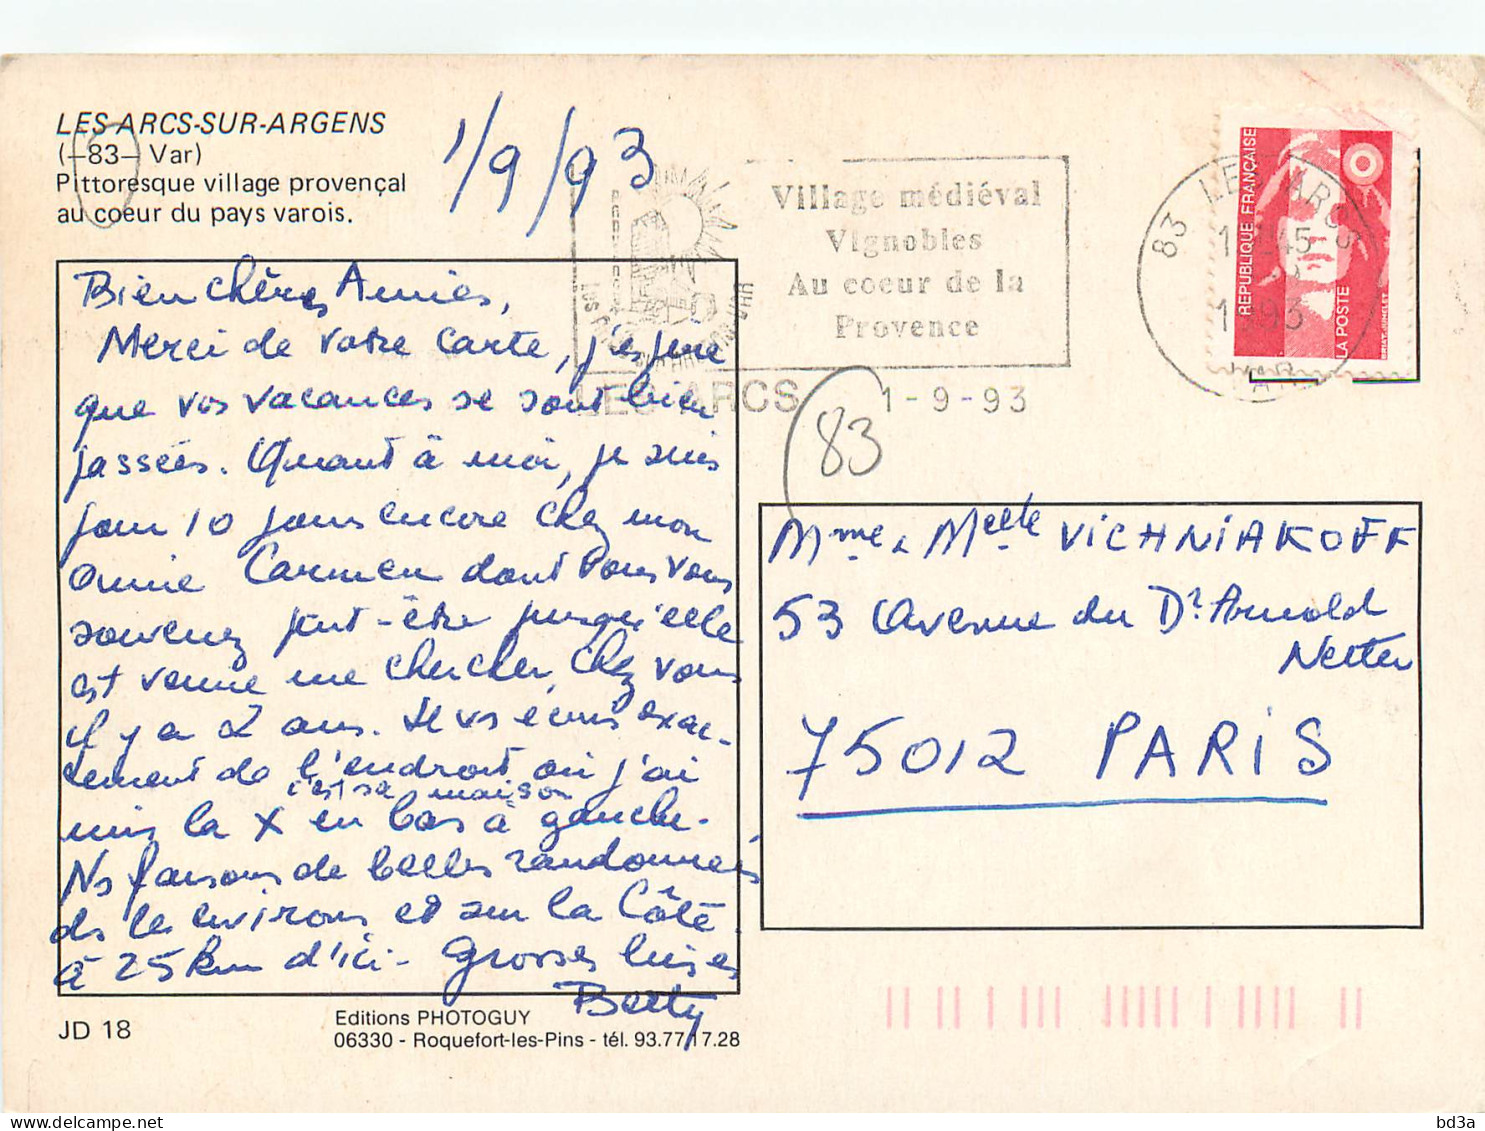 LES ARCS-SUR-ARGENS
(-83- Var)
Pittoresque village provençal
au coeur du pays varois.
1/9/93
Village médiéval
Vignobles
Au coeur de la
Provence
LES ARCS 1-9-93
83 LES ARCS
45
VAR
REPUBLIQUE FRANÇAISE
LA POSTE
83
Bien chères Amies,
Merci de votre carte, j'espère
que vos vacances se sont bien
passées. Quant à moi, je suis
pour 10 jours encore chez mon
amie Carmen dont vous vous
souvenez peut-être puisqu'elle
est venue me chercher chez vous
il y a 2 ans. Je vs écris exac-
tement de l'endroit où j'ai
c'est sa maison
mis la X en bas à gauche.
Ns faisons de belles randonnées
ds les environs et sur la Côte
à 25 km d'ici - Grosses bises
Betty
Mme & Melle VICHNIAKOFF
53 Avenue du Dr. Arnold
Netter
75012 PARIS
JD 18
Editions PHOTOGUY
06330 - Roquefort-les-Pins - tél. 93.77.17.28
bd3a